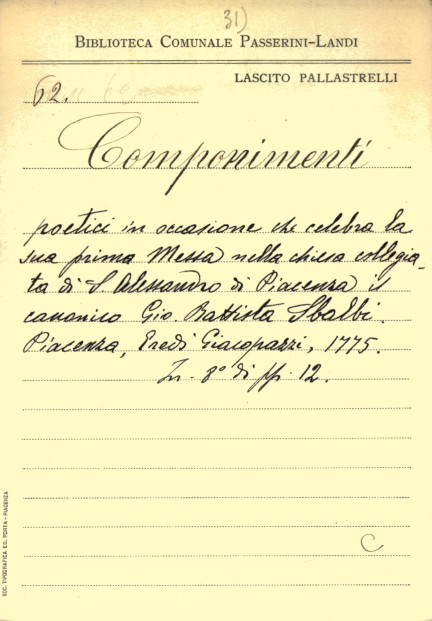 31)
BIBLIOTECA COMUNALE PASSERINI-LANDI
LASCITO PALLASTRELLI
62.
Componimenti
poetici in occasione che celebra la
sua prima Messa nella chiesa collegia-
ta di S. Alessandro di Piacenza il
canonico Gio. Battista Sbalbi.
Piacenza, Eredi Giacopazzi, 1775.
In - 8° di pp. 12.
C
SOC. TIPOGRAFICA ED. PORTA - PIACENZA